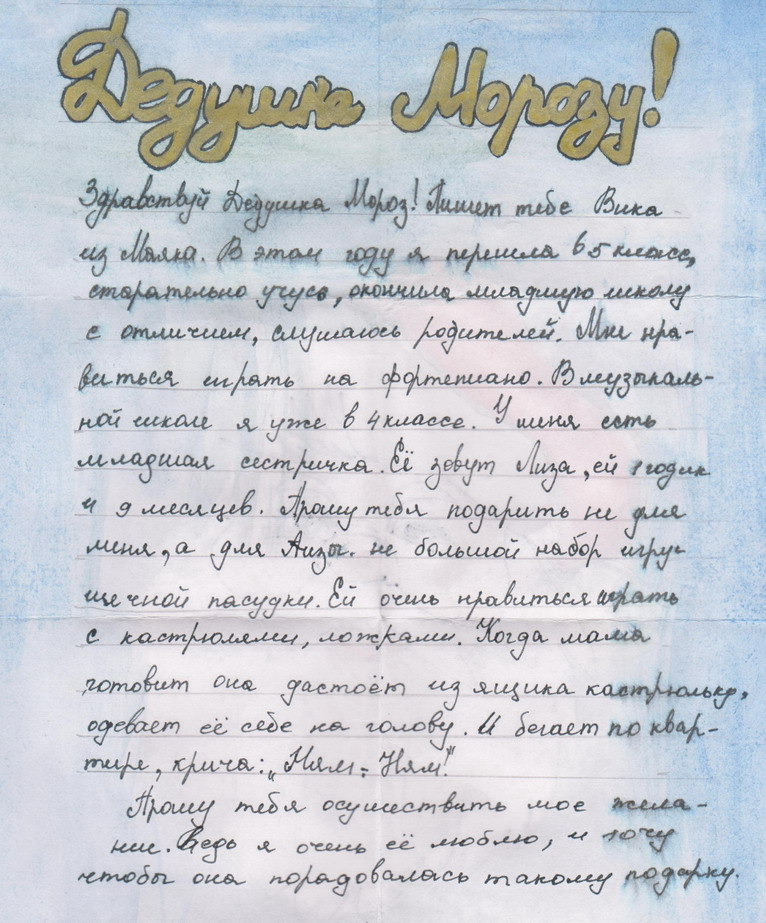 Дедушке Морозу!
Здравствуй Дедушка Мороз! Пишет тебе Вика
из Маяка. В этом году я перешла в 5 класс,
старательно учусь, окончила младшую школу
с отличием, слушаюсь родителей. Мне нра-
виться играть на фортепиано. В музыкаль-
ной школе я уже в 4 классе. У меня есть
младшая сестричка. Её зовут Лиза, ей 1 годик
и 9 месяцев. Прошу тебя подарить не для
меня, а для Лизы. не большой набор игру-
шечной пасудки. Ей очень нравиться играть
с кастрюлями, ложками. Когда мама
готовит она дастоёт из ящика кастрюльку,
одевает её себе на голову. И бегает по квар-
тире, крича: „Ням-Ням!"
Прошу тебя осушествить мое жела-
ние. Ведь я очень её люблю, и хочу
чтобы она порадовалась такому подарку.